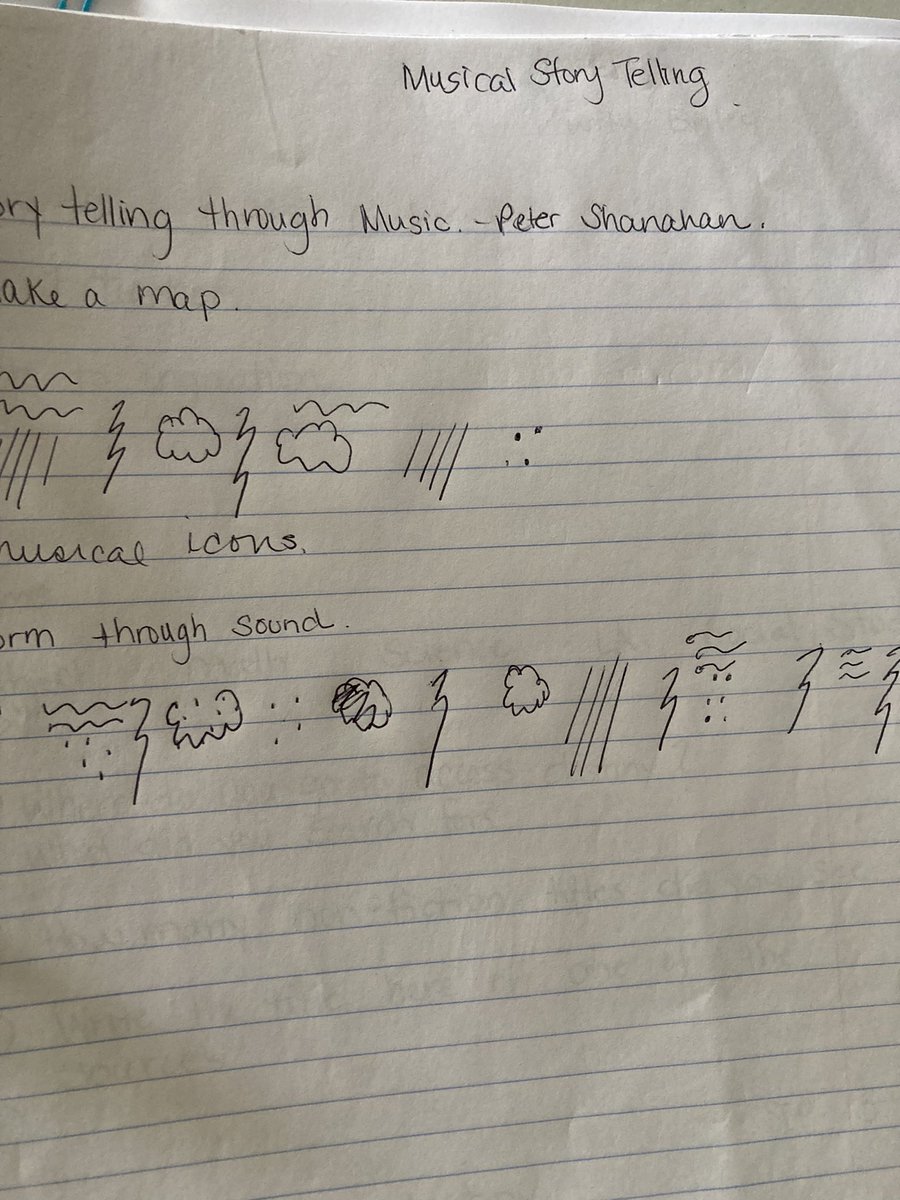 Musical Story Telling
ory telling through Music. - Peter Shanahan.
ake a map.
musical icons.
orm through sound.